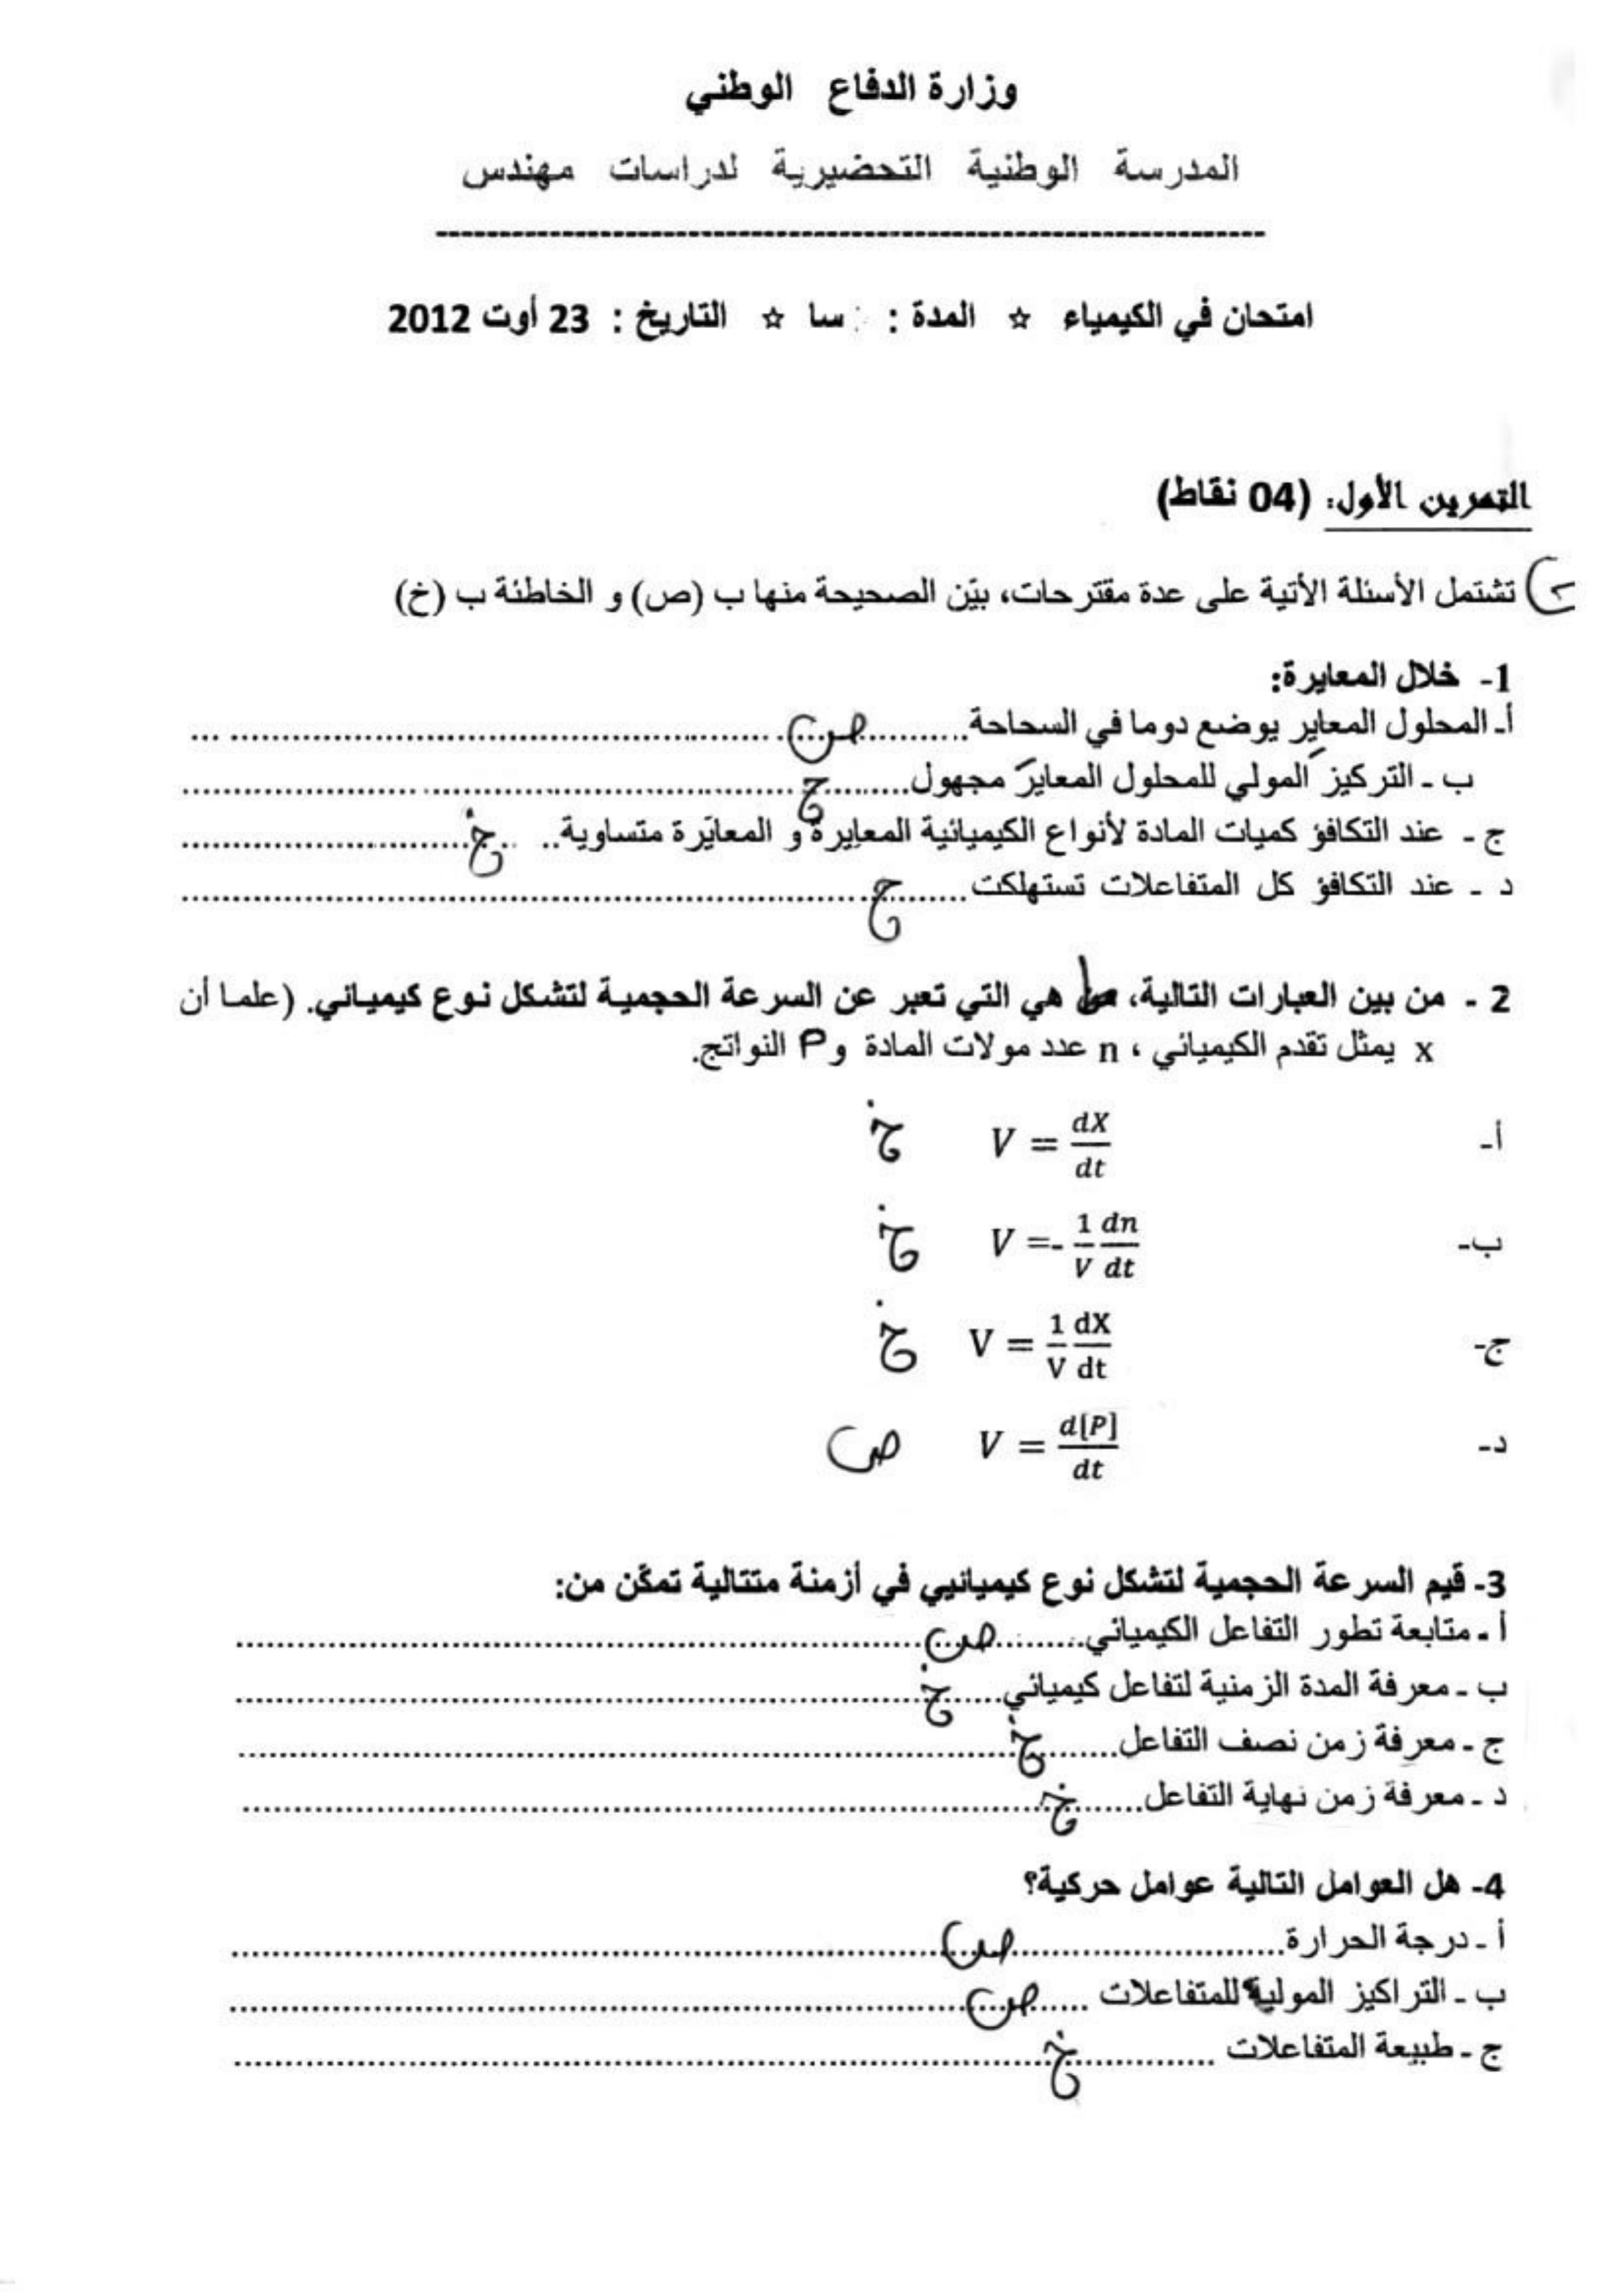 وزارة الدفاع الوطني
المدرسة الوطنية التحضيرية لدراسات مهندس
امتحان في الكيمياء ☆ المدة : سا ☆ التاريخ : 23 أوت 2012
التمرين الأول: (04 نقاط)
تشتمل الأسئلة الأتية على عدة مقترحات، بيّن الصحيحة منها ب (ص) و الخاطئة ب (خ)
1- خلال المعايرة:
أ- المحلول المعايِر يوضع دوما في السحاحة .......... ص ..........
ب - التركيز المولي للمحلول المعايَر مجهول .......... ح ..........
ج - عند التكافؤ كميات المادة لأنواع الكيميائية المعايِرة و المعايَرة متساوية .. خ ..........
د - عند التكافؤ كل المتفاعلات تستهلكت .......... ح ..........
2 - من بين العبارات التالية، ما هي التي تعبر عن السرعة الحجمية لتشكل نوع كيميائي. (علما أن
x يمثل تقدم الكيميائي ، n عدد مولات المادة و P النواتج.
أ- V = dX/dt خ
ب- V =- 1/V dn/dt خ
ج- V = 1/V dX/dt خ
د- V = d[P]/dt ص
3- قيم السرعة الحجمية لتشكل نوع كيميائيي في أزمنة متتالية تمكّن من:
أ - متابعة تطور التفاعل الكيميائي .......... ص ..........
ب - معرفة المدة الزمنية لتفاعل كيميائي .......... خ ..........
ج - معرفة زمن نصف التفاعل .......... خ ..........
د - معرفة زمن نهاية التفاعل .......... خ ..........
4- هل العوامل التالية عوامل حركية؟
أ - درجة الحرارة .......... ص ..........
ب - التراكيز المولية للمتفاعلات .......... ص ..........
ج - طبيعة المتفاعلات .......... خ ..........